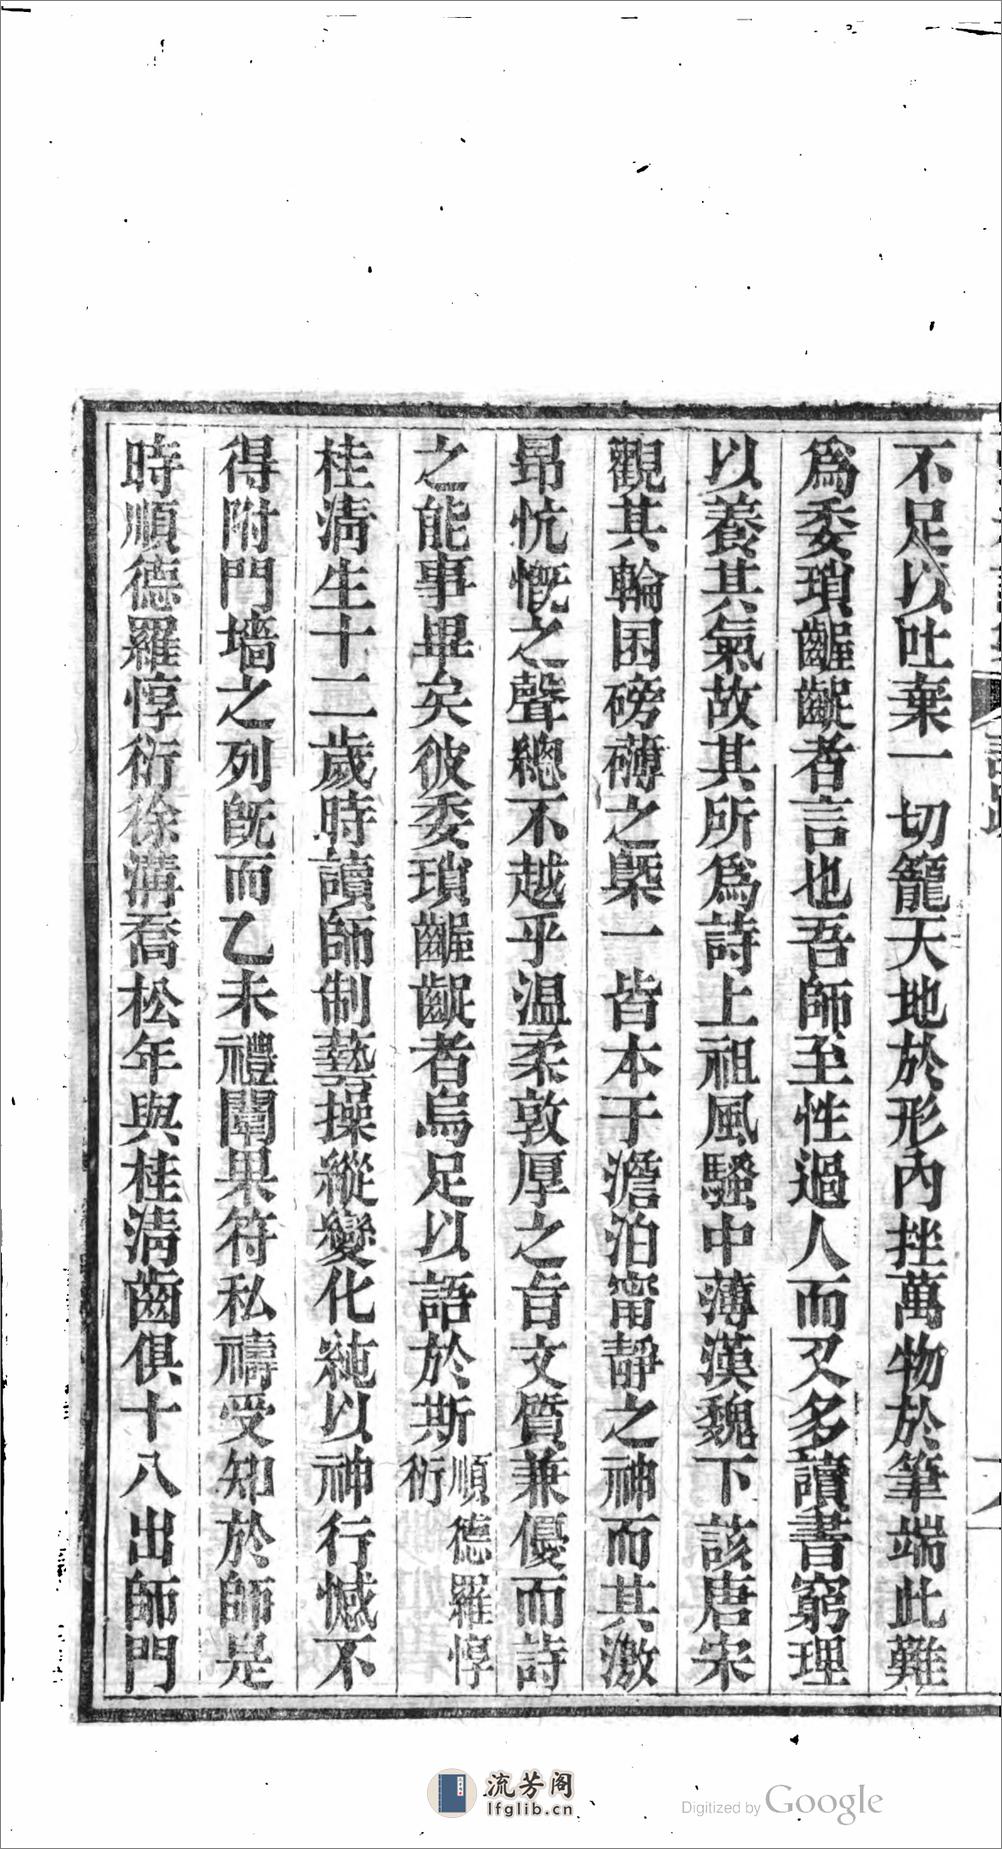 不足以吐棄一切籠天地於形內挫萬物於筆端此難
爲委瑣齷齪者言也吾師至性過人而又多讀書窮理
以養其氣故其所爲詩上祖風騷中薄漢魏下該唐宋
觀其輪囷磅礴之槩一皆本于澹泊甯靜之神而其激
昂忼慨之聲總不越乎温柔敦厚之旨文質兼優而詩
之能事畢矣彼委瑣齷齪者烏足以語於斯
順德羅惇
衍
桂淸生十二歲時讀師制藝操縱變化純以神行憾不
得附門墻之列旣而乙未禮闈果符私禱受知於師是
時順德羅惇衍徐溝喬松年與桂淸齒俱十八出師門
流芳阁
lfglib.cn
Digitized by Google